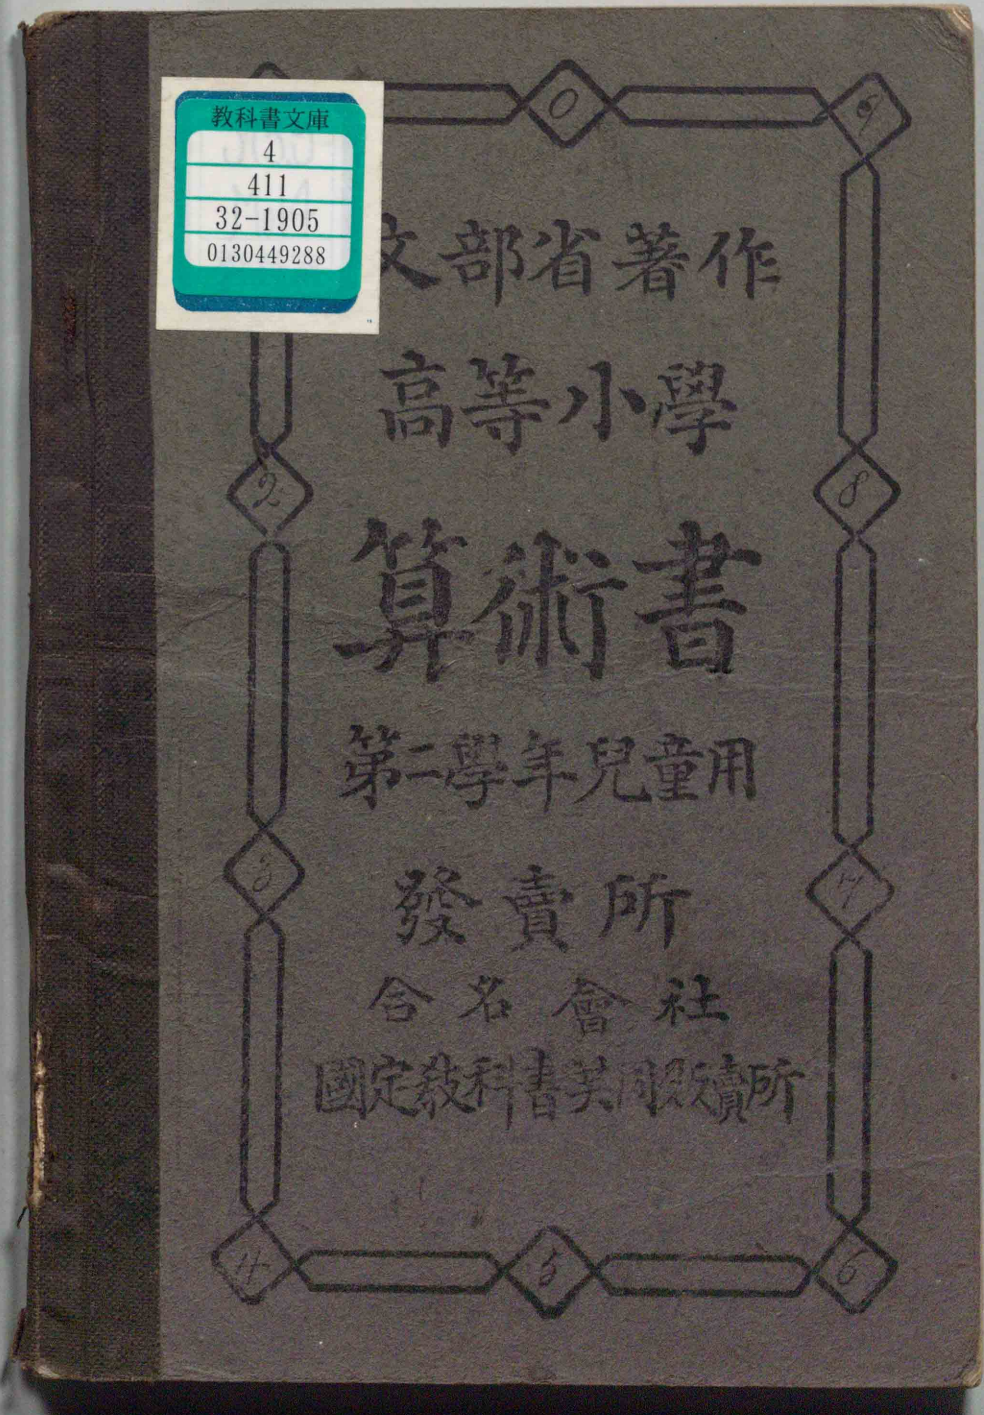 教科書文庫
4
411
32-1905
0130449288
文部省著作
高等小學
算術書
第二學年兒童用
發賣所
合名會社
國定教科書共同販賣所
0
9
2
8
3
7
4
5
6